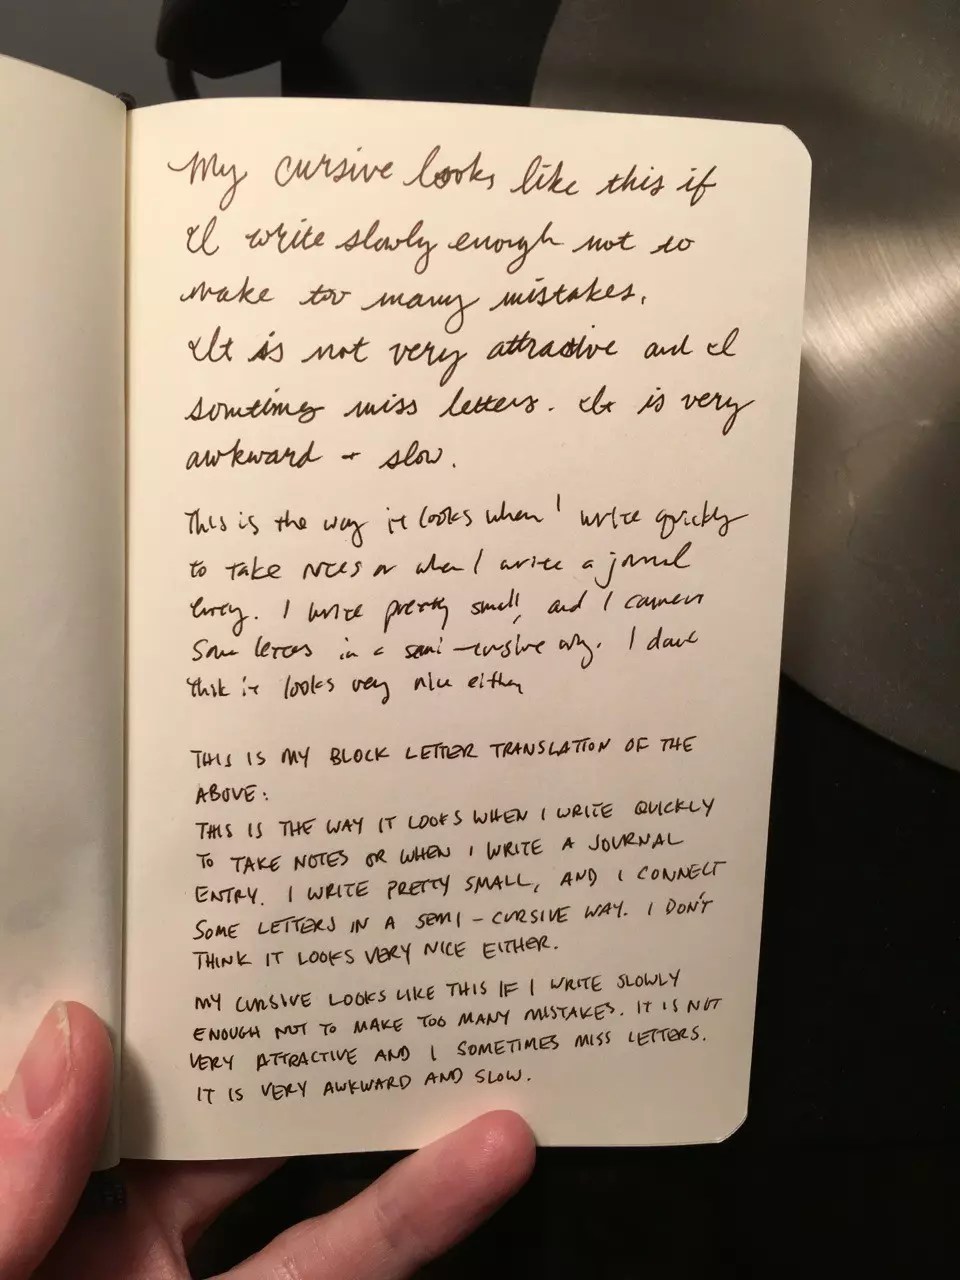 My cursive looks like this if
I write slowly enough not to
make too many mistakes.
It is not very attractive and I
sometimes miss letters. It is very
awkward + slow.
This is the way it looks when I write quickly
to take notes or when I write a journal
entry. I write pretty small, and I connect
some letters in a semi-cursive way. I don't
think it looks very nice either
THIS IS MY BLOCK LETTER TRANSLATION OF THE
ABOVE:
THIS IS THE WAY IT LOOKS WHEN I WRITE QUICKLY
TO TAKE NOTES OR WHEN I WRITE A JOURNAL
ENTRY. I WRITE PRETTY SMALL, AND I CONNECT
SOME LETTERS IN A SEMI-CURSIVE WAY. I DON'T
THINK IT LOOKS VERY NICE EITHER.
MY CURSIVE LOOKS LIKE THIS IF I WRITE SLOWLY
ENOUGH NOT TO MAKE TOO MANY MISTAKES. IT IS NOT
VERY ATTRACTIVE AND I SOMETIMES MISS LETTERS.
IT IS VERY AWKWARD AND SLOW.